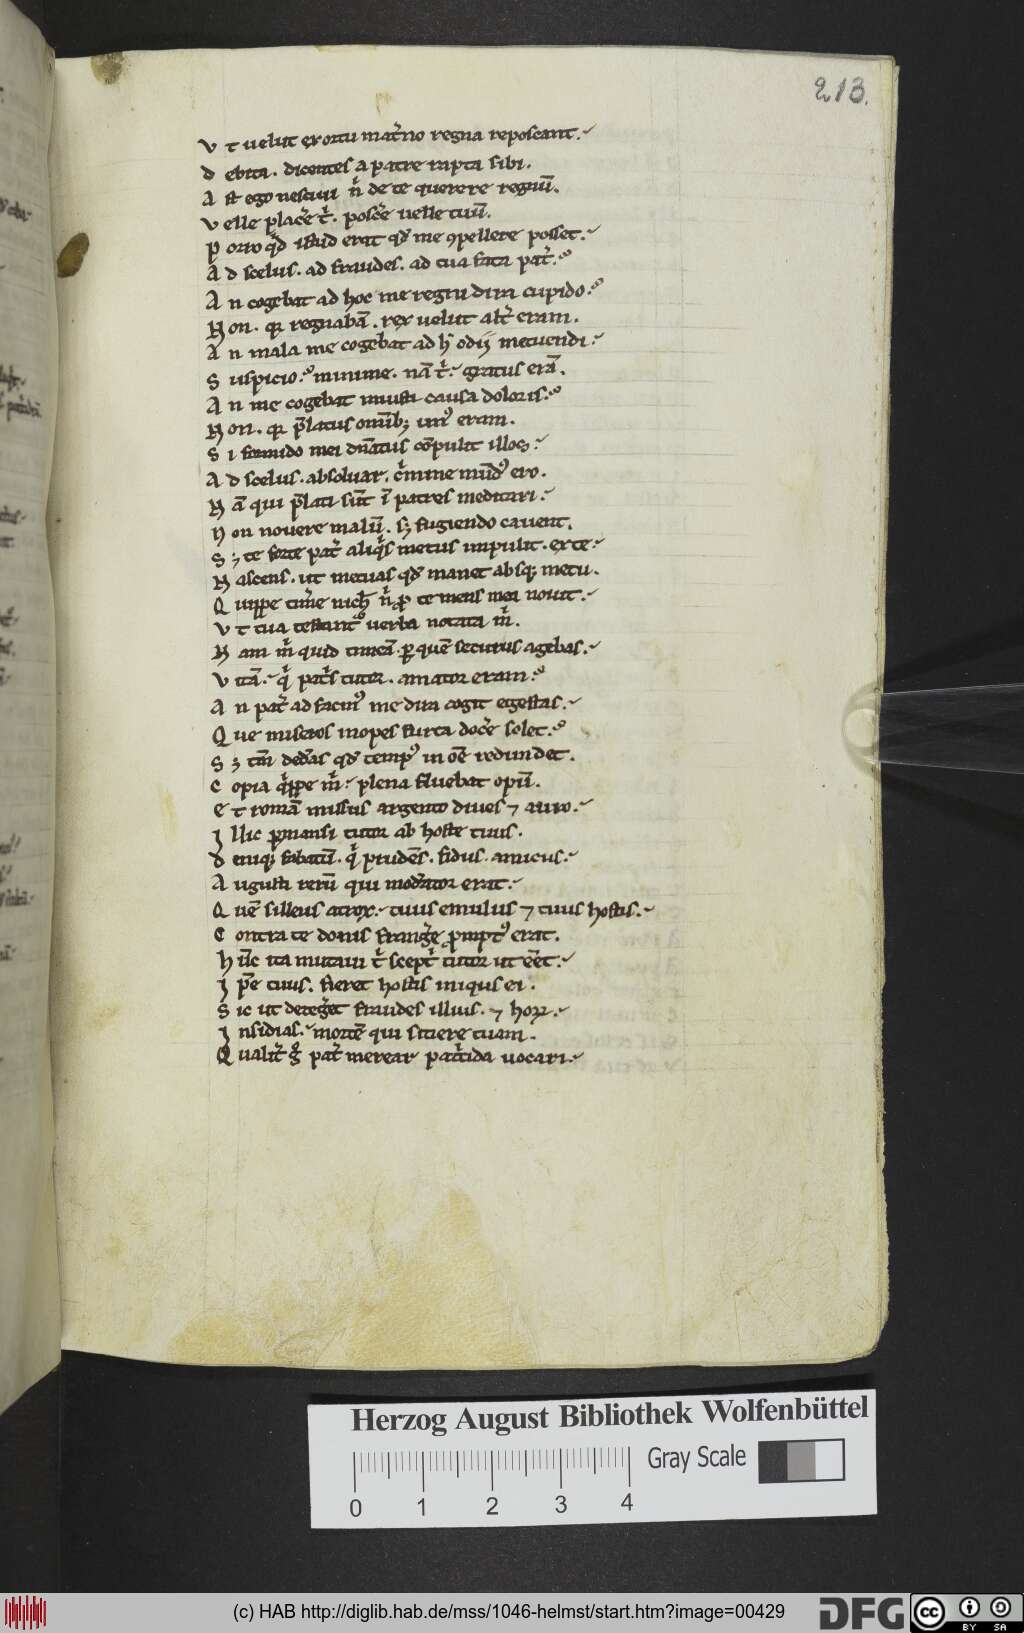 213.
V t uelut exortu mat̄no regna reposcant.
D ebita. dicentes a patre rapta sibi.
A st ego nesciui n̄ de te querere regnū.
V elle placēe t̄. poscēe uelle tuū.
P orro qd̄ istud erat qd̄ me ꝯpellere posset.
A d scelus. ad fraudes. ad tua fata pat̄.
A n cogebat ad hoc me regni dira cupido.
N on. q̄ regnabā. rex uelut alt̄ eram.
A n mala me cogebat ad h̄ odij metuendi.
S uspicio. minime. nā t̄. gratus erā.
A n me cogebat iniusti causa doloris.
N on. q̄ p̄latus omībꝫ un᷒ eram.
S i formido mei dn̄atus cōpulit illos.
A d scelus. absoluar. c̄mine mūd᷒ ero.
N ā qui p̄lati sūt ī patres meditari.
N on nouere malū. sꝫ fugiendo cauent.
S ꝫ te forte pat̄ aliq̄s metus impulit. ex te.
N ascens. ut metuas qd̄ manet absqꝫ metu.
Q uippe tim̄e nich̄ n̄ ꝓ te mens mea nouit.
V t tua testant᷒ uerba notata m̄.
N am m̄ quid timeā. ꝑ quē securus agebas.
V itā. q̄ pat̄s tutor. amator eram.
A n pat̄ ad facin᷒ me dira cogit egestas.
Q ue miseros inopes furta docēe solet.
S ꝫ tm̄ ded̄as qd̄ temp᷒ in oē redundet.
C opia q̄ppe m̄. plena fluebat opū.
E t romā missus argento diues ⁊ auro.
I llic ꝑmansi tutor ab hoste tuus.
D eniqꝫ fabatū. q̄ prudēs. fidus. amicus.
A ugusti rerū qui mod̄ator erat.
Q uē silleus atrox. tuus emulus ⁊ tuus hostis.
C ontra te donis franḡe ꝓmpt᷒ erat.
H ūc ita mutaui t̄ scept̄ tutor ut eēt.
I p̄e tuus. fieret hostis iniqus ei.
S ic ut deteḡet fraudes illius. ⁊ horꝝ.
I nsidias. mortē qui sitiere tuam.
Q ualit̄ g̊ pat̄ merear pat̄cida uocari.
Herzog August Bibliothek Wolfenbüttel
Gray Scale
0 1 2 3 4
(c) HAB http://diglib.hab.de/mss/1046-helmst/start.htm?image=00429
DFG cc BY SA